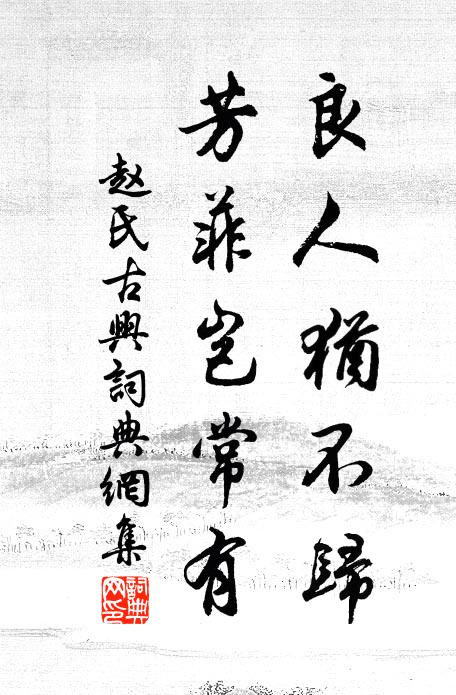 良人猶不歸
芳菲豈常有
赵氏古典詞典網集
詞典
网印